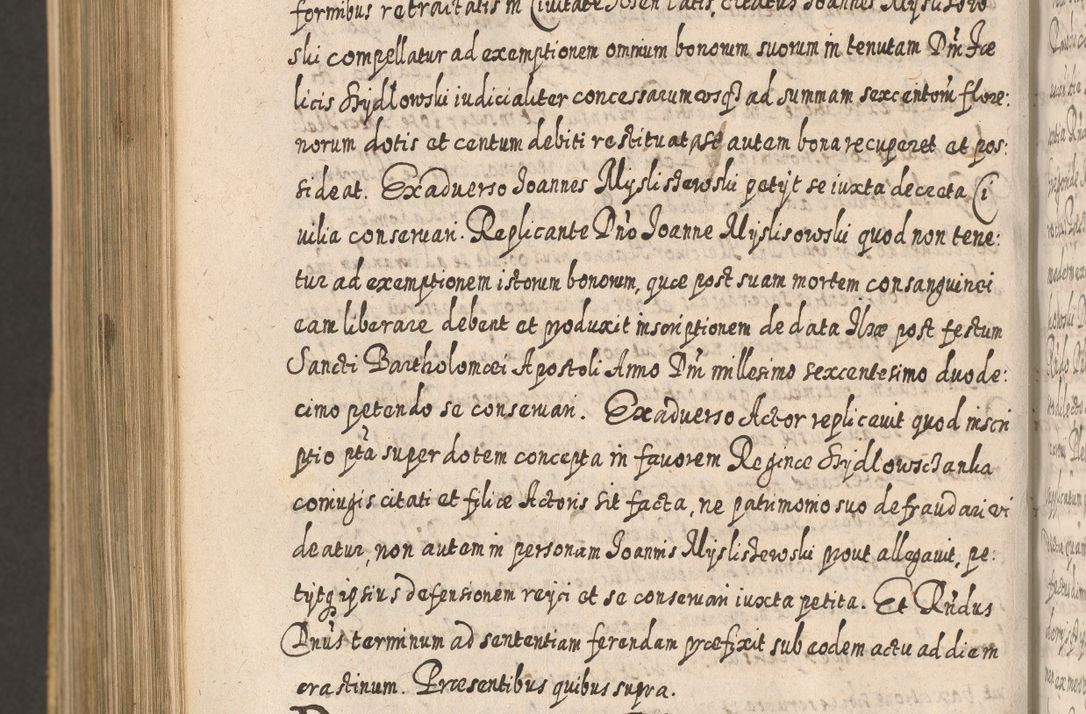 formibus retractatis in Civitate Josephatis, citatus Joannes Myslisow
ski compellatur ad exemptionem omnium bonorum suorum in tenutam Dni Fæ
licis Szydlowski iudicialiter concessarum usq3 ad summam sexcentorũ flore:
norum dotis et centum debiti restituat, ipse autem bona recuperet et pos:
sideat. Exaduerso Joannes Mysliszewski petijt se iuxta decreta Ci
uilia conseruari. Replicante Dno Joanne Myslisowski quod non tene:
tur ad exemptionem istorum bonorum, quæ post suam mortem consanguinei
eam liberare debent et produxit inscriptionem de data Ilzæ post festum
Sancti Bartholomæi Apostoli Anno Dni millesimo sexcentesimo duode:
cimo petendo se conseruari. Exaduerso Actor replicauit quod inscri
ptio pta super dotem concepta in fauorem Reginæ Szydlowscianka
coniugis citati et filiæ Actoris sit facta, ne patrimonio suo defraudari vi
deatur, non autem in personam Joannis Mysliszewski prout allegauit, pe:
tijtq ipsius defensionem reijci et se conseruari iuxta petita. Et Rndus
Dnus terminum ad sententiam ferendam præfixit sub eodem actu ad diem
crastinum. Præsentibus quibus supra.